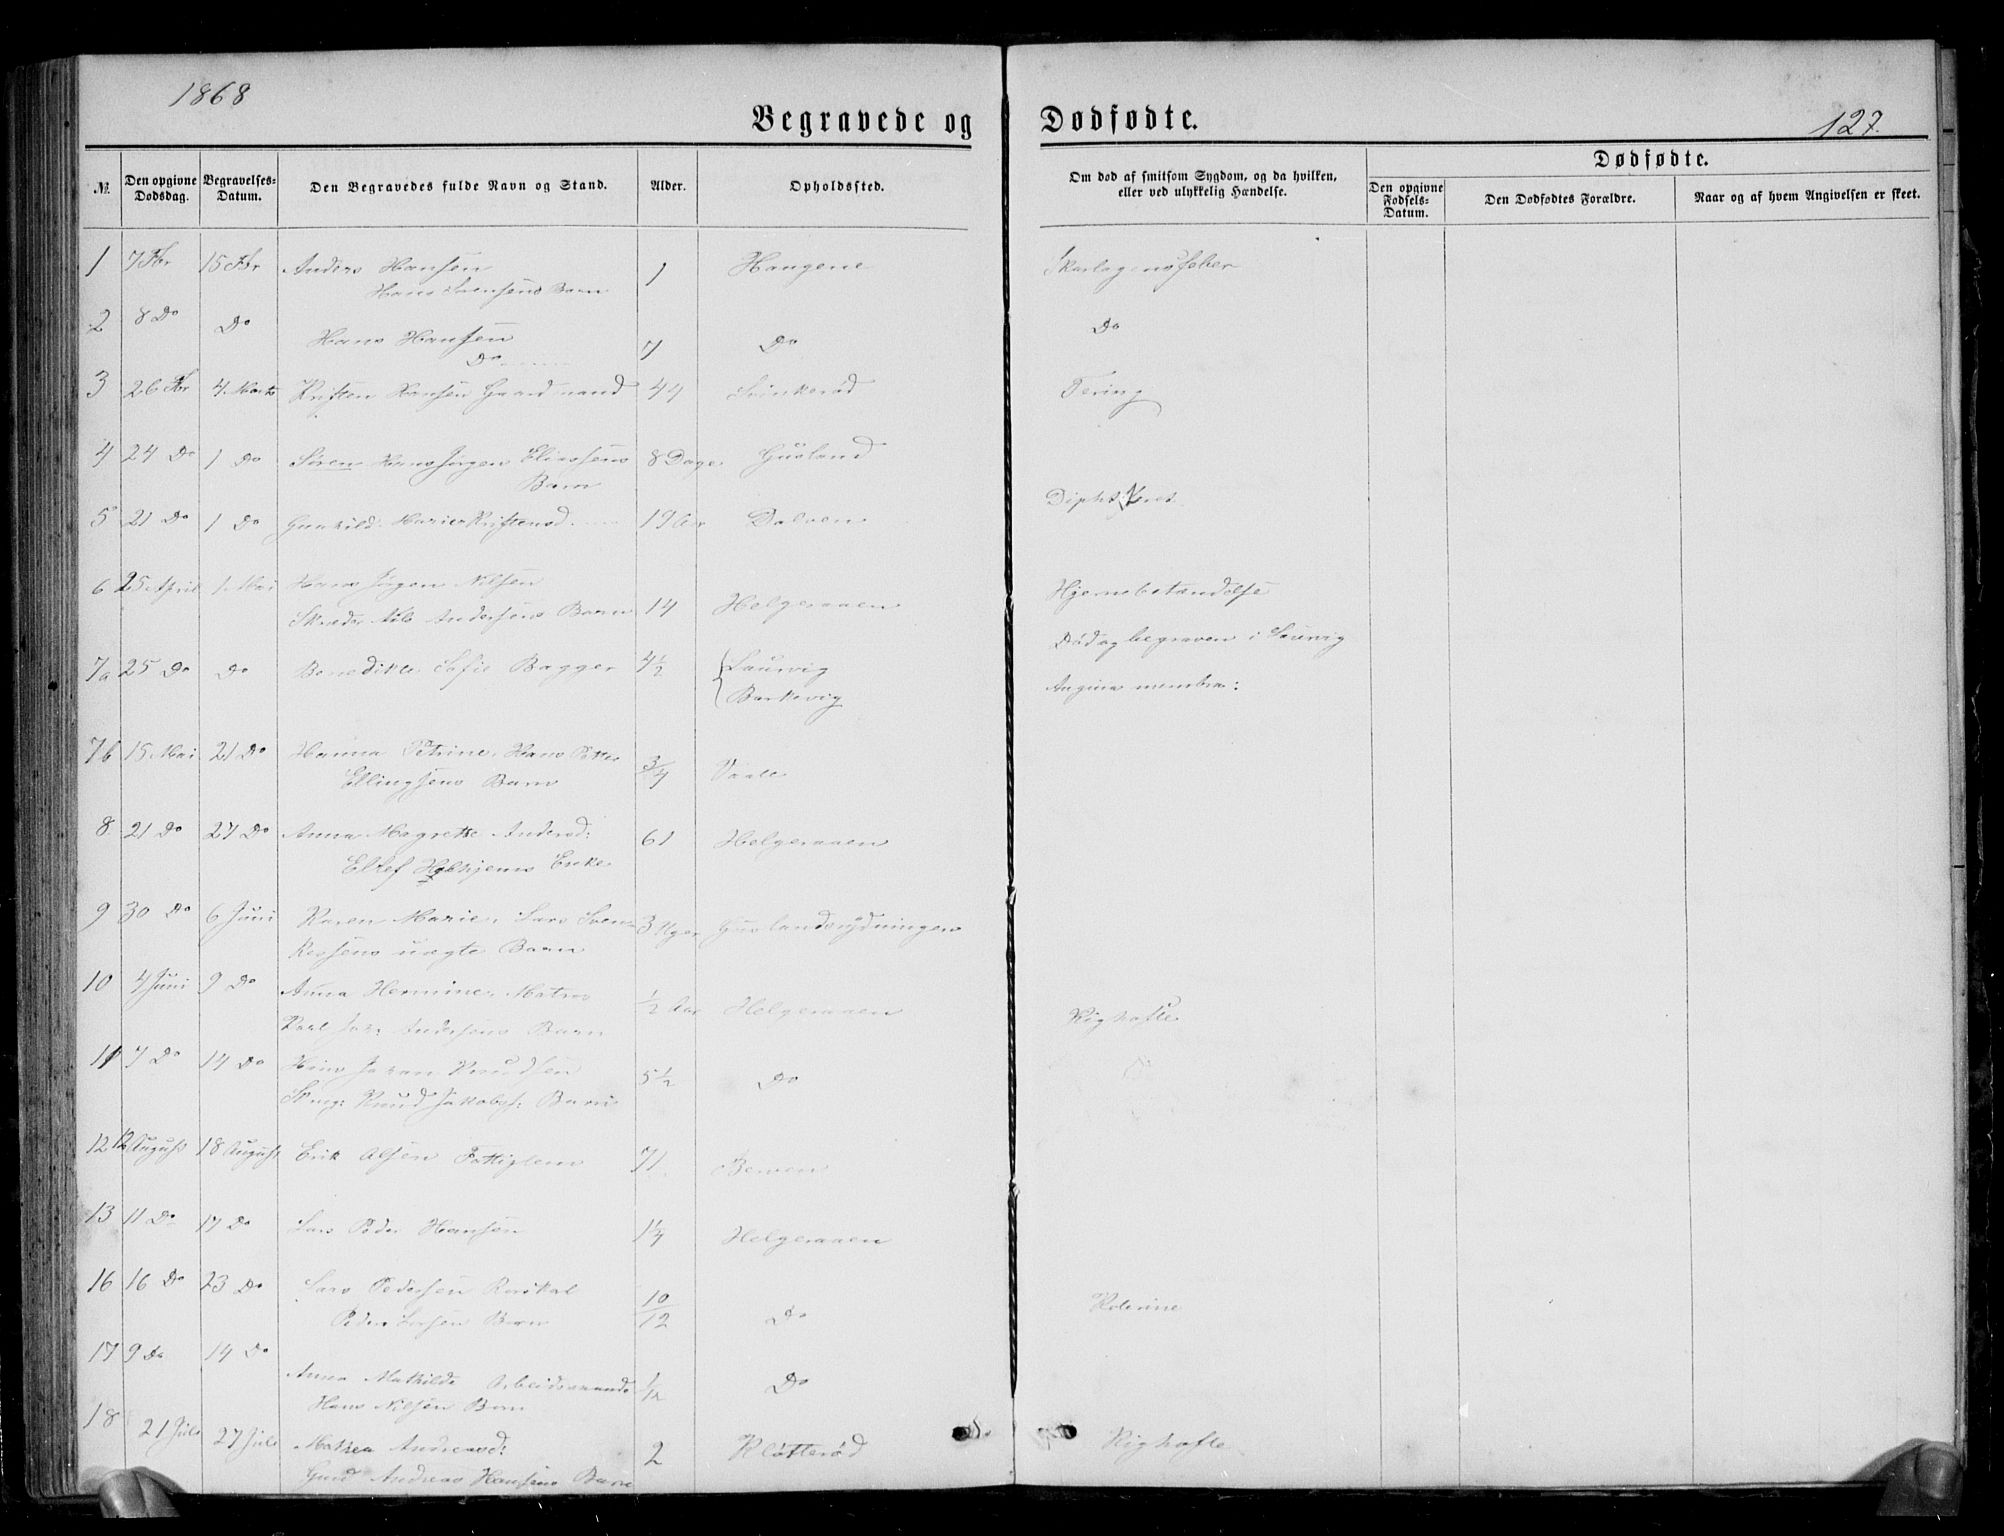 1868
Begravede og Dødfødte.
127.
№
Den opgivne Dødsdag.
Begravelses-Datum.
Den Begravedes fulde Navn og Stand.
Alder.
Opholdssted.
Om død af smitsom Sygdom, og da hvilken, eller ved ulykkelig Hændelse.
Dødfødte.
Den opgivne Fødsels-Datum.
Den Dødfødtes Forældre.
Naar og af hvem Angivelsen er skeet.
1 7 Fbr 15 Fbr Anders Hansen 1 Haugene Skarlagensfeber
Hans Svensens Barn
2 8 Do Do Hans Hansen 7 Do Do
Do
3 26 Fbr 4 Marts Kristen Hansen Gaardmand 44 Svinkerød Tering
4 24 Do 1 Do Søren Hans Jørgen Eliassens 8 Dage Gusland
Barn
5 21 Do 1 Do Gunhild Marie Kristensd. 19 Aar Dalven
6 25 April 1 Mai Hans Jørgen Nilsen Hjernebetændelse
Skræder Nils Andersens Barn 14 Helgeraaen
Død og begraven i Laurvig
7a 25 Do Do Benedikte Sofie Bagger 4½ Laurvig
Barkevig Angina membra:
7b 15 Mai 21 Do Hanna Petrine, Hans Petter
Ellingsens Barn 3/4 Vaale
8 21 Do 27 Do Anna Magrethe Andersd: 61 Helgeraaen
Ellef Enke
9 30 Do 6 Juni Karen Marie, Lars Sven-
kessens uægte Barn 3 Uger Guslandsrydningen
10 4 Juni 9 Do Anna Hermine, Matros ½ Aar Helgeraaen Kighoste
Karl Andersens Barn
11 7 Do 14 Do Johan Knudsen 5½ Do
Knud Jakobs: Barn
12 12 August 18 August Erik Olsen Fattiglem 71
13 11 Do 17 Do Lars Peder Hansen 1¼ Helgeraaen
16 16 Do 23 Do Lars Pedersen 10/12 Do Kolerine
Peder Larsen Barn
17 9 Do 14 Do
Anna Mathilde Arbeidsmand 1/12 Do
Hans Nilsen Barn
18 21 Juli 27 Juli Mathea Andreasd: 2 Kløfterød Kighoste
Gmd Andreas Hansens Barn